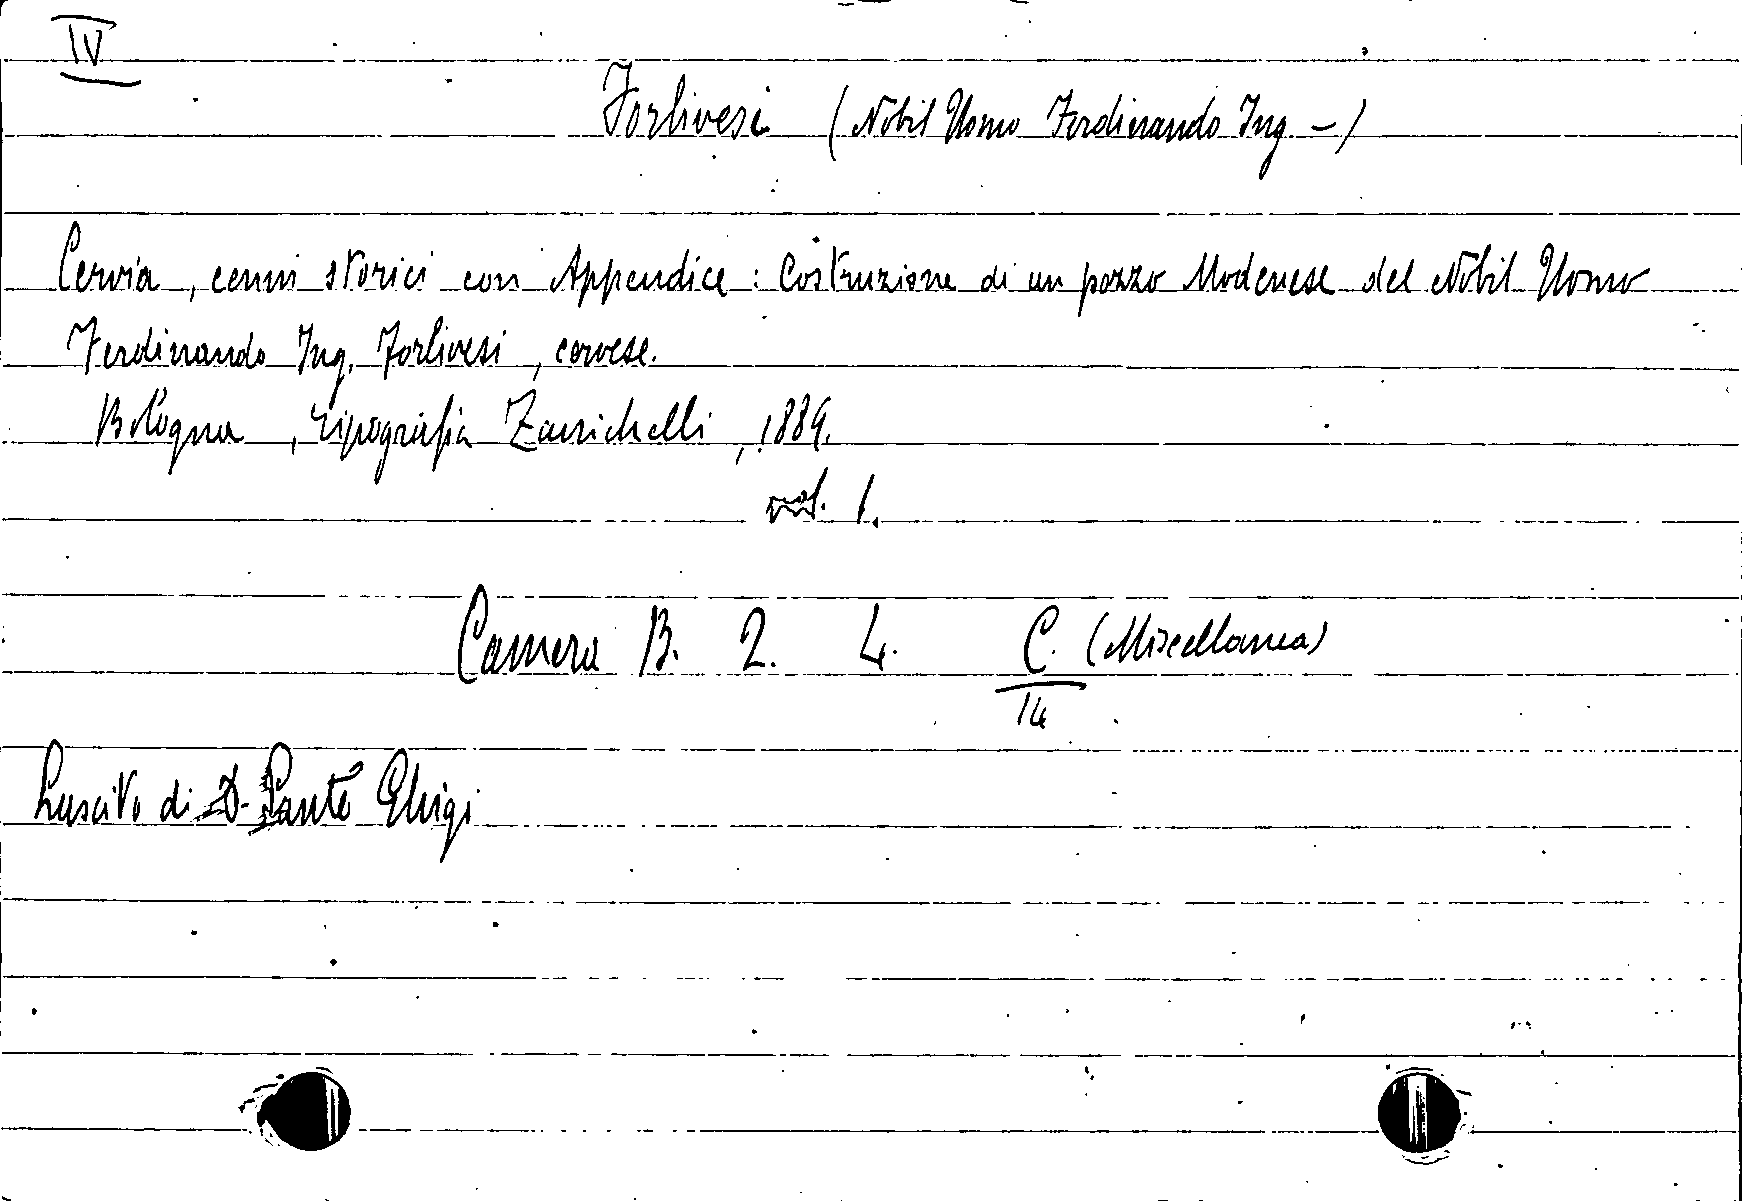 IV
Forlivesi (Nobil Uomo Ferdinando Ing. -)
Cervia, cenni storici con Appendice: Costruzione di un pozzo Modenese del Nobil Uomo
Ferdinando Ing. Forlivesi, cervese.
Bologna, Tipografia Zanichelli, 1889.
vol. 1.
Camera B. 2. 4. C. (Miscellanea)
14
Lascito di D. Sante Ghigi